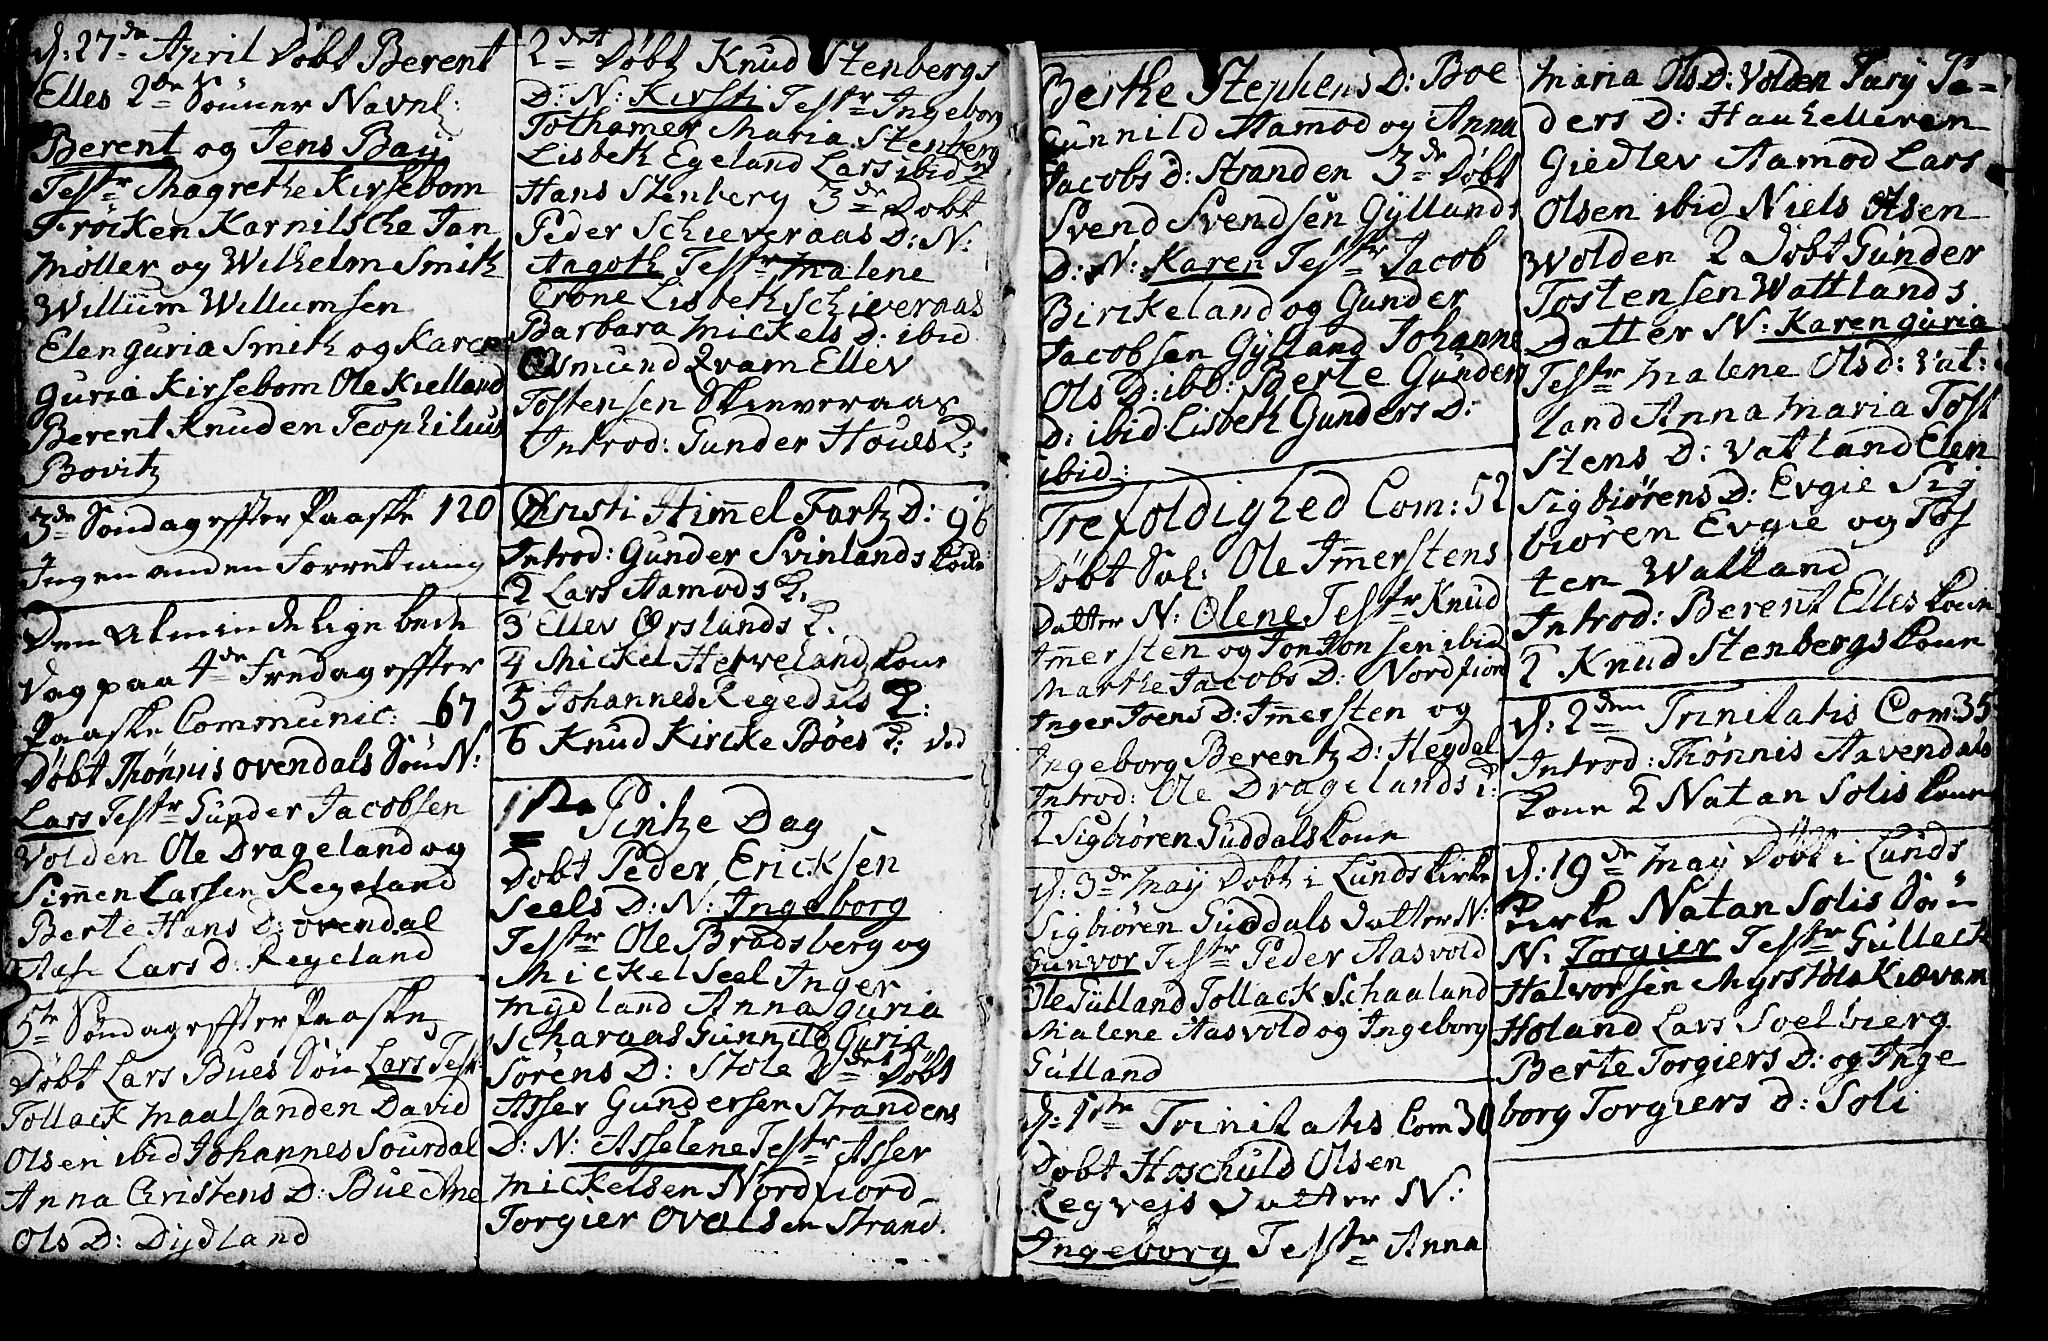 d: 27de April Døbt Berent
Elles 2de Sönner Navnl:
Berent og Jens Bay
Testr Magrethe Kirsebom
Fröcken Karnilsche Jan
Møller og Wilhelm Smith
Willum Willumsen
Elen guria Smith og Karen
guria Kirsebom Ole Kielland
Berent Knuden Teophilus
Bovitz
3de Söndag effter Paaske 120
Ingen anden Forretning
Den Almindelige bede
dag paa 4de Fredag effter
Paaske Communic: 67
Døbt Thønnis ovendals Sön N:
Lars Testr Gunder Jacobsen
Volden Ole Drageland og
Simen Larsen Regeland
Berte Hans D: ovendal
Aase Lars D: Regeland
5te Söndag effter Paaske
Døbt Lars Bues Sön Lars Test:
Tollack Maalsanden David
Olsen ibid Johannes Sourdal
Anna Cristens D: Bue Ane
Ols D: Dydland
2det Døbt Knud Stenbergs
D: N: Kirsti Testr Ingeborg
Tothamer Maria Stenberg
Lisbeth Egeland Lars ibid og
Hans Stenberg 3de Døbt
Peder Schieveraas D: N:
Angoth Testr Malene
Crone Lisbeth Schieveraas
Barbara Mickels D: ibid
Osmund Qvam Ellev
Tostensen Skieveraas
Introd: Gunder Houes K:
Christi Himmel Fartz D: 96
Introd: Gunder Svinlands kone
2 Lars Aamods K:
3 Ellev Ørslands K:
4 Mickel Hetveland kone
5 Johannes Regedals K:
6 Knud Kircke Bøes K: Ved
1ste Pintze Dag
Døbt Peder Ericksen
Seels D: N: Ingeborg
Testr Ole Bradsberg og
Mickel Seel Inger
Mydland Anna guria
Scharaas Gunnild Guria
Sørens D: Stole 2det Døbt
Asser Gundersen Strandens
D: N: Asselene Testr Asser
Mickelsen Nordfiord
Torgier Ovalsen Strand
Berthe Stephens D: Boe
Gunnild Aamod og Anna
Jacobs D: Stranden 3de Døbt
Svend Svendsen Gyllands
D: N: Karen Testr Jacob
Birckeland og Gunder
Jacobsen Gylland Johanne
Ols D: ibb: Berte Gunders
D: ibid Lisbeth Gunders D:
ibid:
Trefoldighed Com: 52
Døbt Sal: Ole Imerstens
Datter N: Olene Testr Knud
Imersten og Jon Jonsen ibid
Marthe Jacobs D: Nordfiord
Inger Joens D: Imersten og
Ingeborg Berentz D: Hegdal
Introd: Ole Dragelands K:
2 Sigbiören Guddals kone
d: 3de May Døbt i Lunds kirke
Sigbiören Guddals datter N:
Gunvor Testr Peder Aasvold
Ole Gulland Tollack Schaaland
Malene Aasvold og Ingeborg
Gulland
d: 1ste Trinitatis Com 30
Døbt Hoschuld Olsen
Regvejs Datter N:
Ingeborg Testr Anna
Maria Ols D: Volden Siry Pe=
ders D: Haukelleren
Giedlev Aamod Lars
Olsen ibid Niels Olsen
Wolden 2 Døbt Gunder
Tostensen Wattlands
Datter N: Karen guria
Testr Malene Ols d: Vat:
land Anna Maria Tost
stens D: Vattland Elen
Sigbiörens D: Evgie Sig
biören Evgie og Tos
ten Watland
Introd: Berent Elles kone
2 Knud Stenbergs kone
d: 2den Trinitatis Com: 35
Introd: Thønnis Aavendals
kone 2 Natan Solis kone
d: 19de May Døbt i Lunds
Kirke Natan Solis Sön
N: Torgier Testr Gullack
Halvorsen Myrstøl Kiævam
Holand Lars Soelbierg
Berte Torgiers D: og Inge
borg Torgiers d: Soli